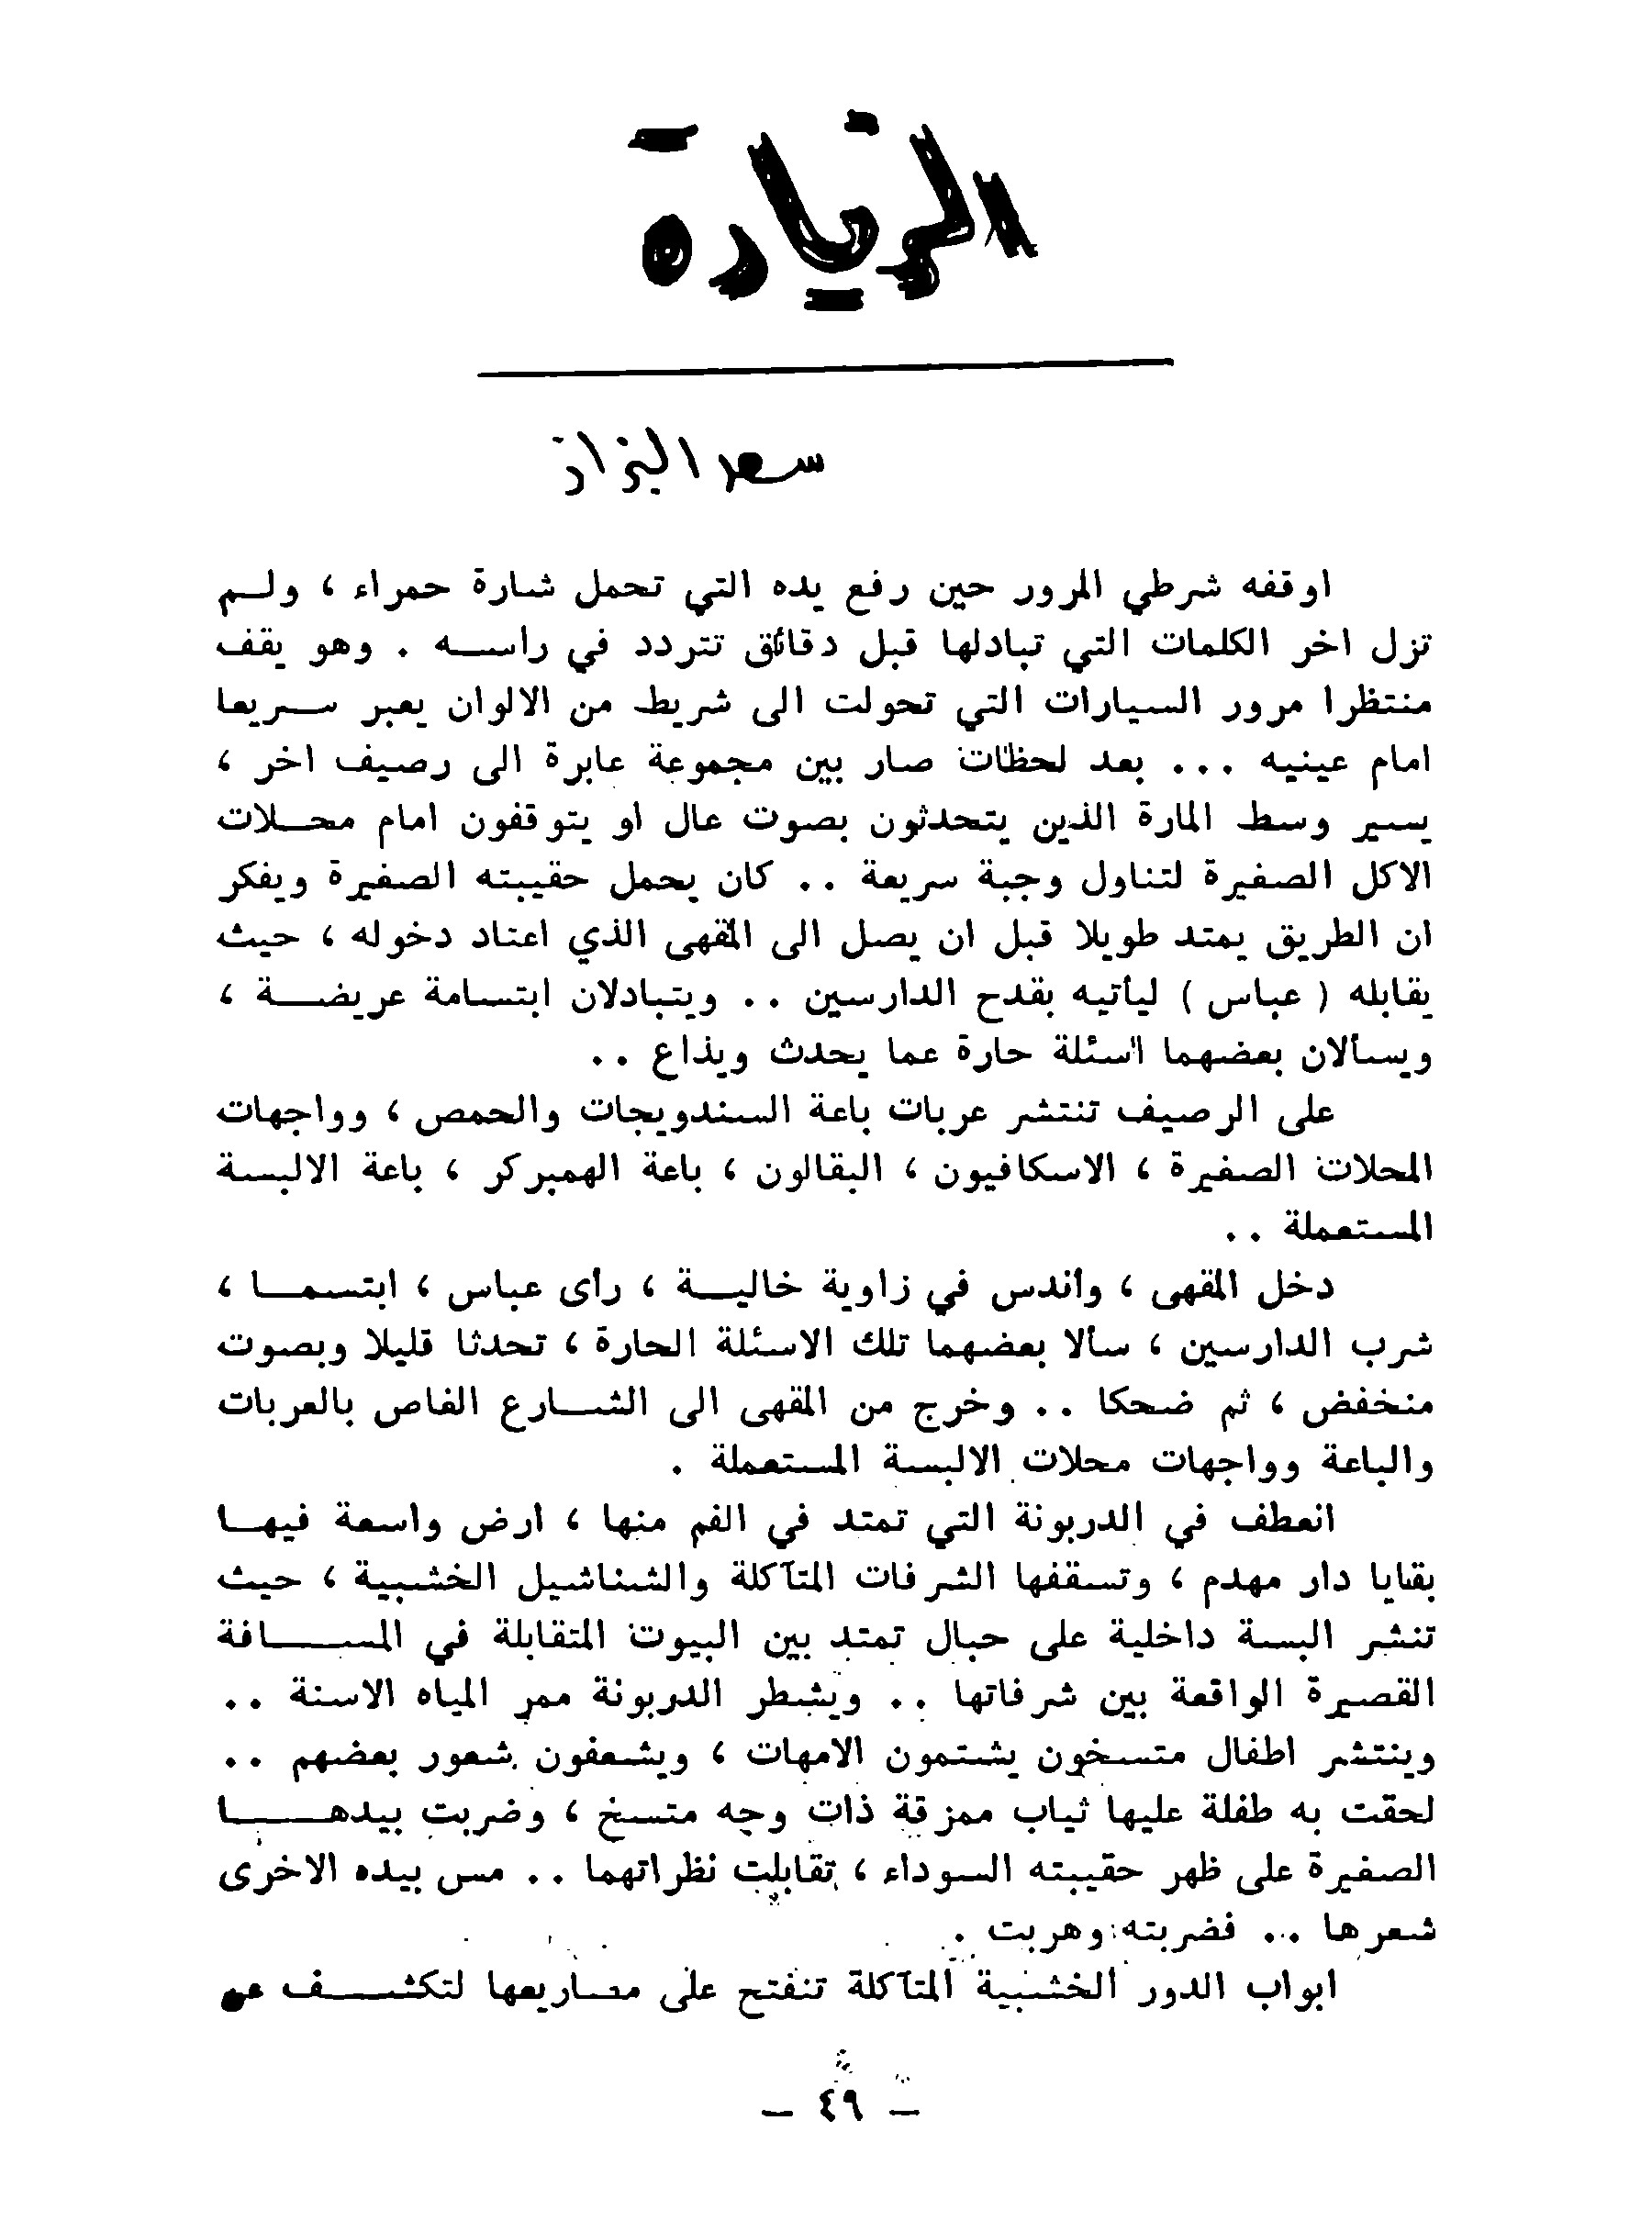 الزيارة
سعد البزاز
اوقفه شرطي المرور حين رفع يده التي تحمل شارة حمراء ، ولم
تزل اخر الكلمات التي تبادلها قبل دقائق تتردد في راسه . وهو يقف
منتظرا مرور السيارات التي تحولت الى شريط من الالوان يعبر سريعا
امام عينيه ... بعد لحظات صار بين مجموعة عابرة الى رصيف اخر ،
يسير وسط المارة الذين يتحدثون بصوت عال او يتوقفون امام محلات
الاكل الصغيرة لتناول وجبة سريعة .. كان يحمل حقيبته الصغيرة ويفكر
ان الطريق يمتد طويلا قبل ان يصل الى المقهى الذي اعتاد دخوله ، حيث
يقابله ( عباس ) ليأتيه بقدح الدارسين .. ويتبادلان ابتسامة عريضة ،
ويسألان بعضهما اسئلة حارة عما يحدث ويذاع ..
على الرصيف تنتشر عربات باعة السندويجات والحمص ، وواجهات
المحلات الصغيرة ، الاسكافيون ، البقالون ، باعة الهمبركر ، باعة الالبسة
المستعملة ..
دخل المقهى ، واندس في زاوية خالية ، رأى عباس ، ابتسما ،
شرب الدارسين ، سألا بعضهما تلك الاسئلة الحارة ، تحدثا قليلا وبصوت
منخفض ، ثم ضحكا .. وخرج من المقهى الى الشارع الغاص بالعربات
والباعة وواجهات محلات الالبسة المستعملة .
انعطف في الدربونة التي تمتد في الفم منها ، ارض واسعة فيها
بقايا دار مهدم ، وتسقفها الشرفات المتآكلة والشناشيل الخشبية ، حيث
تنشر البسة داخلية على حبال تمتد بين البيوت المتقابلة في المسافة
القصيرة الواقعة بين شرفاتها .. ويشطر الدربونة ممر المياه الاسنة ..
وينتشر اطفال متسخون يشتمون الامهات ، ويشعفون شعور بعضهم ..
لحقت به طفلة عليها ثياب ممزقة ذات وجه متسخ ، وضربت بيدها
الصغيرة على ظهر حقيبته السوداء ، تقابلت نظراتهما .. مس بيده الاخرى
شعرها .. فضربته وهربت .
ابواب الدور الخشبية المتآكلة تنفتح على مصاريعها لتكشف عن
– ٤٩ –